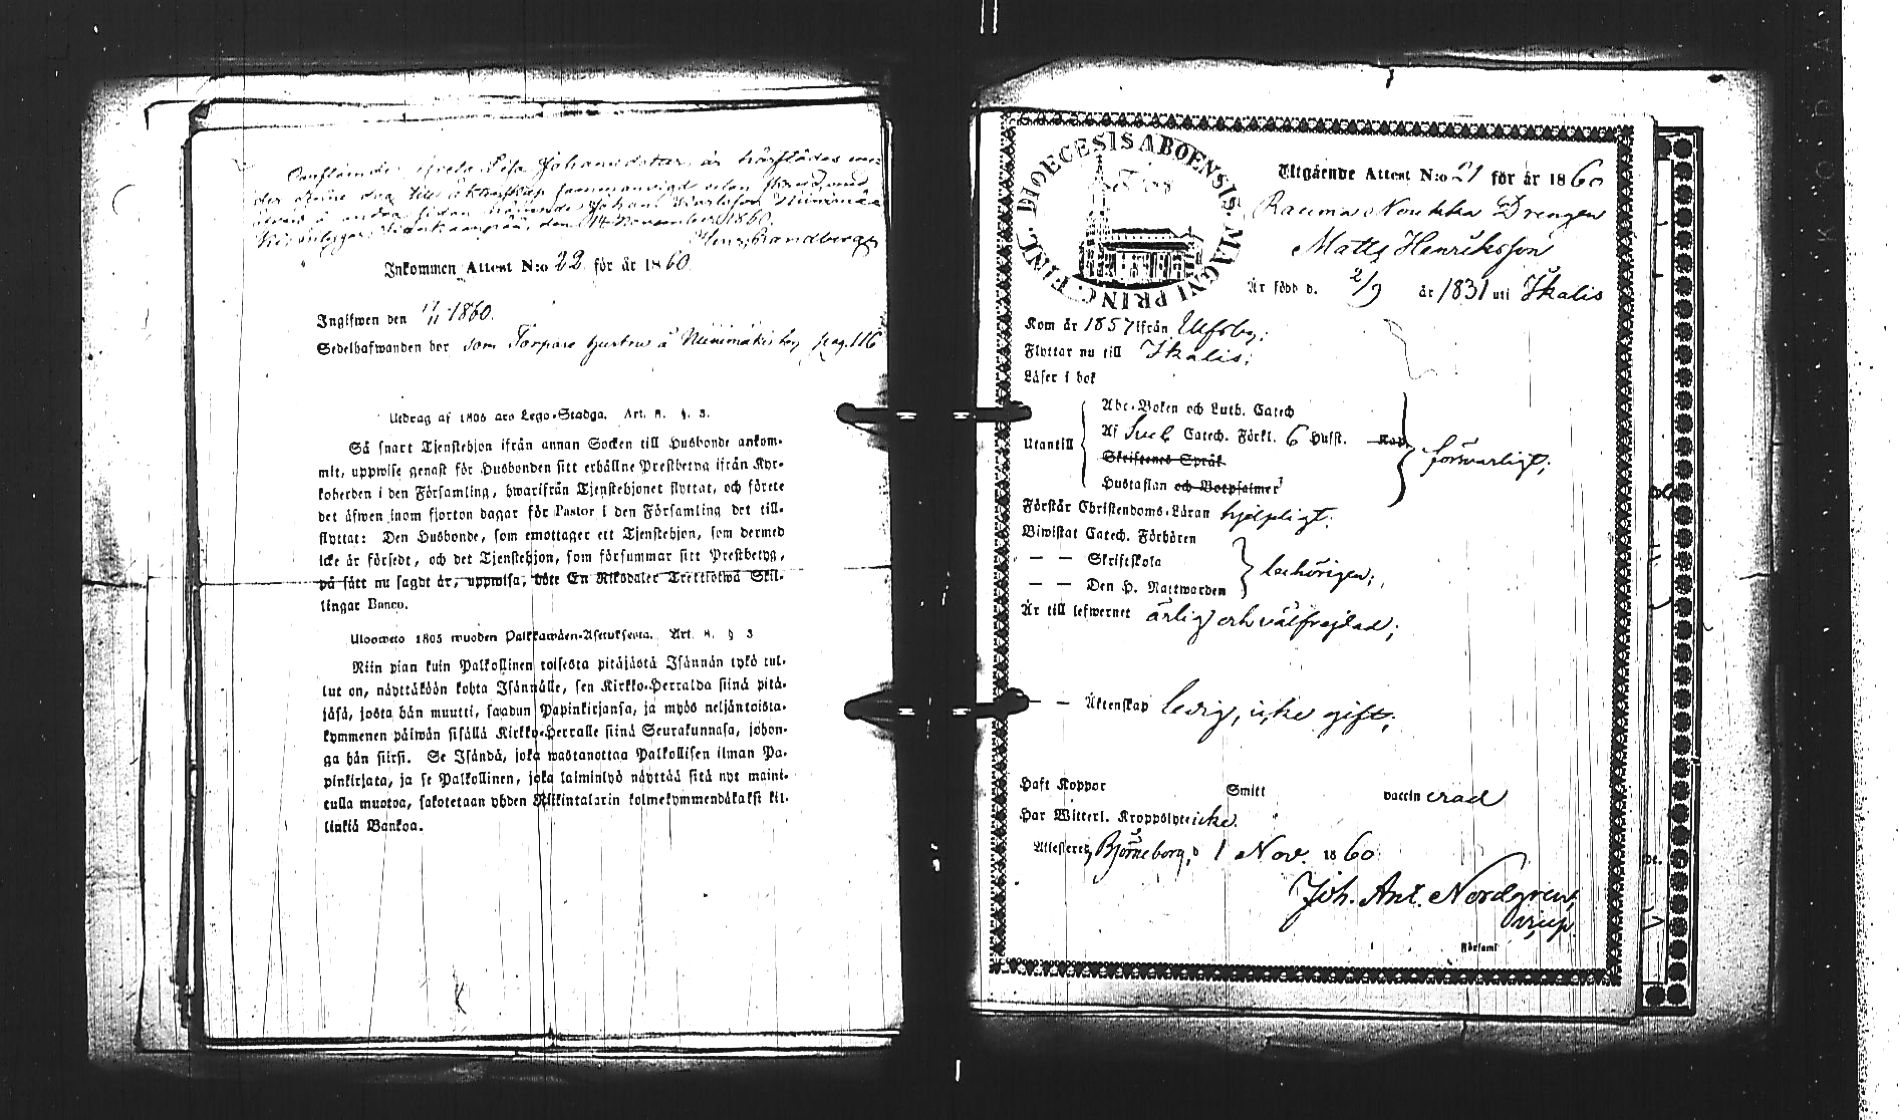 Johansdotter, är härstädes
Johan Karlsson
14 November 1860.
Inkommen Attest N:o 22 för år 1860.
Ingifwen den 17/11 1860.
Sedelhafwanden bor som Torpare hustru å Niinimäkis by pag. 116
Utdrag af 1805 års Lego-Stadga. Art. 8. §. 3.
Så snart Tjenstehjon ifrån annan Socken till Husbonde ankom-
mit, uppwise genast för Husbonden sitt erhållne Prestbetyg ifrån Kyr-
koherden i den Församling, hwarifrån Tjenstehjonet flyttat, och förete
det äfwen inom fjorton dagar för Pastor i den Församling det till-
flyttat: Den Husbonde, som emottager ett Tjenstehjon, som dermed
icke är försedt, och det Tjenstehjon, som försummar sitt Prestbetyg,
på sätt nu sagdt är, uppwisa, böte En Riksdaler Trettiotwå Skil-
lingar Banco.
Ulosweto 1805 wuoden Palkkawäen-Asetuksesta. Art. 8. § 3
Niin pian kuin Palkollinen toisesta pitäjästä Isännän tykö tul-
lut on, näyttäköön kohta Isännälle, sen Kirkko-Herralda siinä pitä-
jäsä, josta hän muutti, saadun Papinkirjansa, ja myös neljäntoista-
kymmenen päiwän sisällä Kirkko-Herralle siinä Seurakunnasa, johon-
ga hän siirsi. Se Isändä, joka wastanottaa Palkollisen ilman Pa-
pinkirjata, ja se Palkollinen, joka laiminlyö näyttää sitä nyt maini-
tulla muotoa, sakotetaan yhden Riikintalarin kolmekymmendäkaksi kil-
linkiä Bankoa.
DIOECESIS ABOENSIS. MAGNI PRINC. FINL.
Utgående Attest N:o 21 för år 1860
Raumo Noukka Drengen
Matts Henriksson
Är född d. 2/9 år 1831 uti Ikalis
Kom år 1857 ifrån Ulfsby;
Flyttar nu till Ikalis;
Läser i bok
Utantill
Abc-Boken och Luth. Catech
Af Sveb Catech. Förkl. 6 Hufst. Kap
Skriftenes Språk
Hustaflan och Botpsalmer
försvarligt;
Förstår Christendoms-Läran hjelpligt;
Biwistat Catech. Förhören
— — Skriftskola
— — Den H. Nattwarden
behörigen;
Är till lefwernet ärlig och välfrejdad;
— — Äktenskap ledig, icke gift;
Haft Koppor Smitt vaccin erad
Har Witterl. Kroppslyte icke.
Attesteras, Björneborg, d 1 Nov. 1860.
Joh. Ant. Nordgren,
Församl